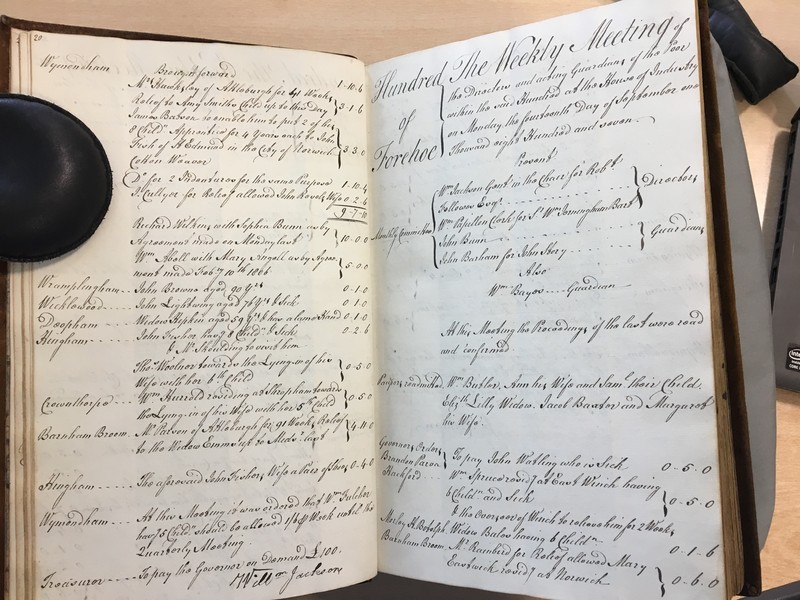 20
Wymondham
Bro.t forward 1-10-4
Mr. Hunksley of Attleburgh for 41 Weeks
Relief to Amy Smiths Child up to this Day 3-1-6
James Barson to enable him to put 2 of his
8 Child.n Apprentice for 4 Years each to John
Fish of St Edmund in the City of Norwich 3-3-0
Cotton Weaver
D.o for 2 Indentures for the same Purpose 1-10-4
J. Cullyer for Relief allowed John Wife 0-2-6
9-7-10
Richard Walker, with Sophia Bunn as by
Agreement made on Monday last 10-0-0
Wm. Aboll with Mary as by Agree-
ment made Feb.y 10th 1806 5-0-0
Wramplingham -- John Browne aged 90 Yrs 0-1-0
Wicklewood -- John Lightwing aged 76 Yrs & Sick 0-1-0
Deopham -- Widow Hipkin aged 59 Yrs & has a lame Hand 0-1-0
Hingham -- John Fisher hav.g 8 Child.n & Sick 0-2-6
& Mr. Skoulding to visit him
Tho.s Woolnor towards the Lying-in of his
Wife with her 6th Child 0-5-0
Crownthorpe -- Wm. Hurrell residing at Shropham toward
the Lying-in of his Wife with her 5th Child 0-5-0
Barnham Broom. Mr. Parson of Attleburgh for 91 Weeks Relief
to the Widow Emms up to Mids.r last 4-11-0
Hingham -- The aforesaid John Fishers Wife a Pair of Shoes 0-4-0
Wymondham -- At this Meeting it was ordered that Wm. Fulcher
hav.g 5 Child.n should be allowed 1/6 p Week until the
Quarterly Meeting.
Treasurer -- To pay the Governor on Demand £100.
Will.m Jackson
Hundred of Forehoe
The Weekly Meeting of
the Directors and acting Guardians of the Poor
within the said Hundred at the House of Industry
on Monday the fourteenth Day of September one
Thousand eight Hundred and seven.
Present
Monthly Committee
Wm. Jackson Gent. in the Chair for Rob.t
Fellowes Esq.r Directors
Wm. Papillon Clerk for Sr. Wm. Jerningham Bar.t
John Bunn Guardians
John Barham for John Hery
Also
Wm. Bayes -- Guardian
At this Meeting the Proceedings of the last were read
and confirmed
Paupers readmitted. Wm. Butler, Ann his Wife and Sam.l their Child.
Eliz.th Lilly Widow. Jacob Baxter and Margaret
his Wife.
Governors Orders
Brandon Parva To pay John Watling who is Sick 0-5-0
Hackford -- Wm. Spruce resid.g at East Winch having
6 Child.n and Sick 0-5-0
& the Overseer of Winch to relieve him for 2 Weeks
Morley St. Botolph. Widow Bales having 6 Child.n 0-1-6
Barnham Broom. Mr. Rambird for Relief allowed Mary
Eastwick resid.g at Norwich 0-6-0
intel
CORE